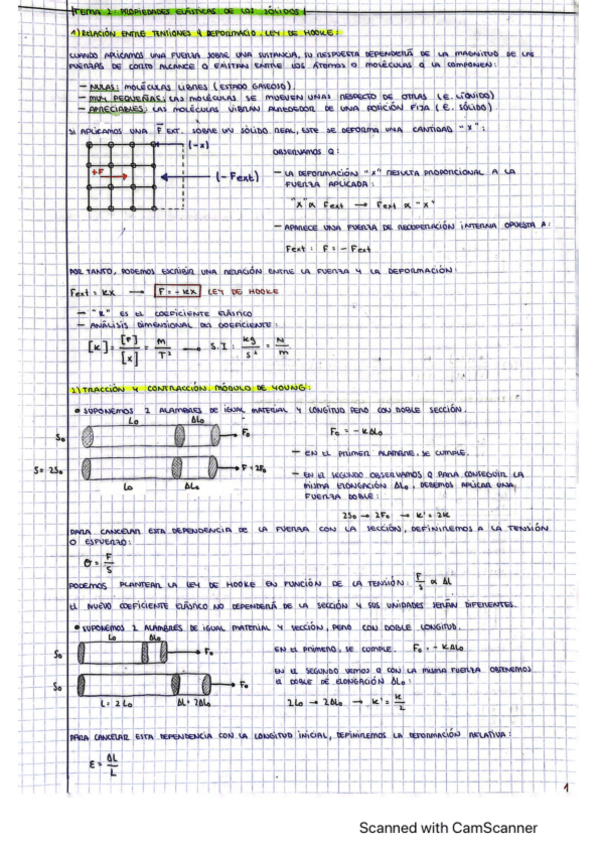 TEMA 2: PROPIEDADES ELÁSTICAS DE LOS SÓLIDOS
1) RELACIÓN ENTRE TENSIONES Y DEFORMACIO. LEY DE HOOKE:
CUANDO APLICAMOS UNA FUERZA SOBRE UNA SUSTANCIA, SU RESPUESTA DEPENDERÁ DE LA MAGNITUD DE LAS
FUERZAS DE CORTO ALCANCE Q EXISTAN ENTRE LOS ÁTOMOS O MOLÉCULAS Q LA COMPONEN:
— NULAS: MOLÉCULAS LIBRES (ESTADO GASEOSO)
— MUY PEQUEÑAS: LAS MOLÉCULAS SE MUEVEN UNAS RESPECTO DE OTRAS (E. LÍQUIDO)
— APRECIABLES: LAS MOLÉCULAS VIBRAN ALREDEDOR DE UNA POSICIÓN FIJA (E. SÓLIDO)
SI APLICAMOS UNA F EXT. SOBRE UN SÓLIDO REAL, ESTE SE DEFORMA UNA CANTIDAD "X":
(-x)
+F
(-Fext)
OBSERVAMOS Q:
— LA DEFORMACIÓN "X" RESULTA PROPORCIONAL A LA
FUERZA APLICADA:
"X" α Fext → Fext α "X"
— APARECE UNA FUERZA DE RECUPERACIÓN INTERNA OPUESTA A:
Fext: F = - Fext
POR TANTO, PODEMOS ESCRIBIR UNA RELACIÓN ENTRE LA FUERZA Y LA DEFORMACIÓN:
Fext = KX → F = - KX LEY DE HOOKE
— "K" ES EL COEFICIENTE ELÁSTICO
— ANÁLISIS DIMENSIONAL DEL COEFICIENTE:
[K] = [F]/[X] = M/T² → S.I: kg/s² = N/m
2) TRACCIÓN Y CONTRACCIÓN. MÓDULO DE YOUNG:
• SUPONEMOS 2 ALAMBRES DE IGUAL MATERIAL Y LONGITUD PERO CON DOBLE SECCIÓN.
Lo ΔLo
So
Fo
S = 2So
F = 2Fo
Lo ΔLo
Fo = - KΔLo
— EN EL PRIMER ALAMBRE, SE CUMPLE.
— EN EL SEGUNDO OBSERVAMOS Q PARA CONSEGUIR LA
MISMA ELONGACIÓN ΔLo, DEBEMOS APLICAR UNA
FUERZA DOBLE:
2So → 2Fo → K' = 2K
PARA CANCELAR ESTA DEPENDENCIA DE LA FUERZA CON LA SECCIÓN, DEFINIREMOS A LA TENSIÓN
O ESFUERZO:
σ = F/S
PODEMOS PLANTEAR LA LEY DE HOOKE EN FUNCIÓN DE LA TENSIÓN: F/S α ΔL
EL NUEVO COEFICIENTE ELÁSTICO NO DEPENDERÁ DE LA SECCIÓN Y SUS UNIDADES SERÁN DIFERENTES.
• SUPONEMOS 2 ALAMBRES DE IGUAL MATERIAL Y SECCIÓN, PERO CON DOBLE LONGITUD.
Lo ΔLo
So
Fo
So
Fo
L = 2Lo ΔL = 2ΔLo
EN EL PRIMERO, SE CUMPLE. Fo = - KΔLo
EN EL SEGUNDO VEMOS Q CON LA MISMA FUERZA OBTENEMOS
EL DOBLE DE ELONGACIÓN ΔLo:
2Lo → 2ΔLo → K' = K/2
PARA CANCELAR ESTA DEPENDENCIA CON LA LONGITUD INICIAL, DEFINIREMOS LA DEFORMACIÓN RELATIVA:
ε = ΔL/L
1
Scanned with CamScanner